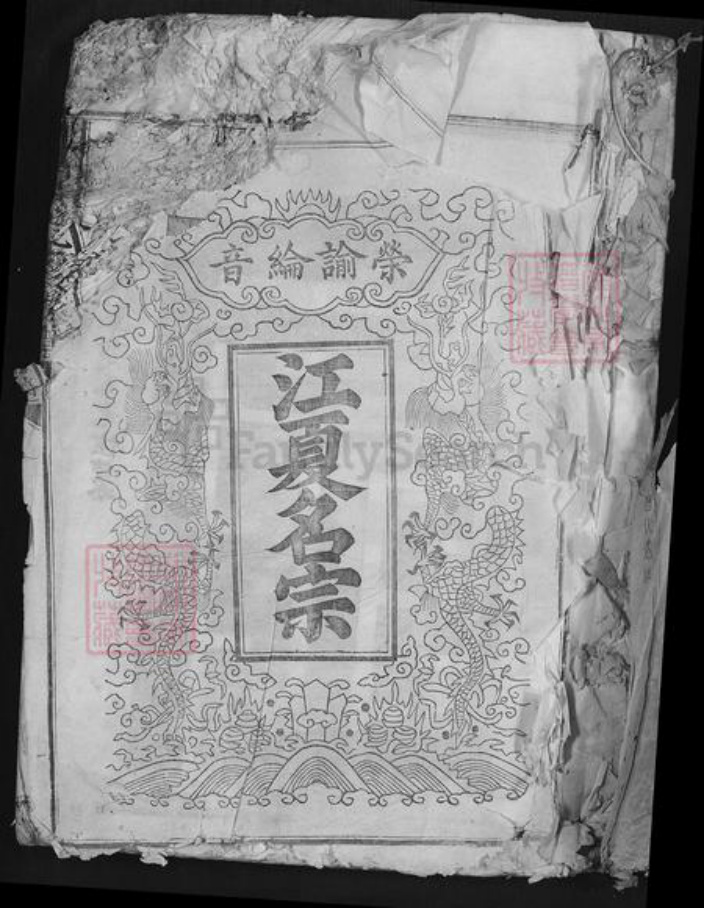 榮諭綸音
江夏名宗
FamilySearch